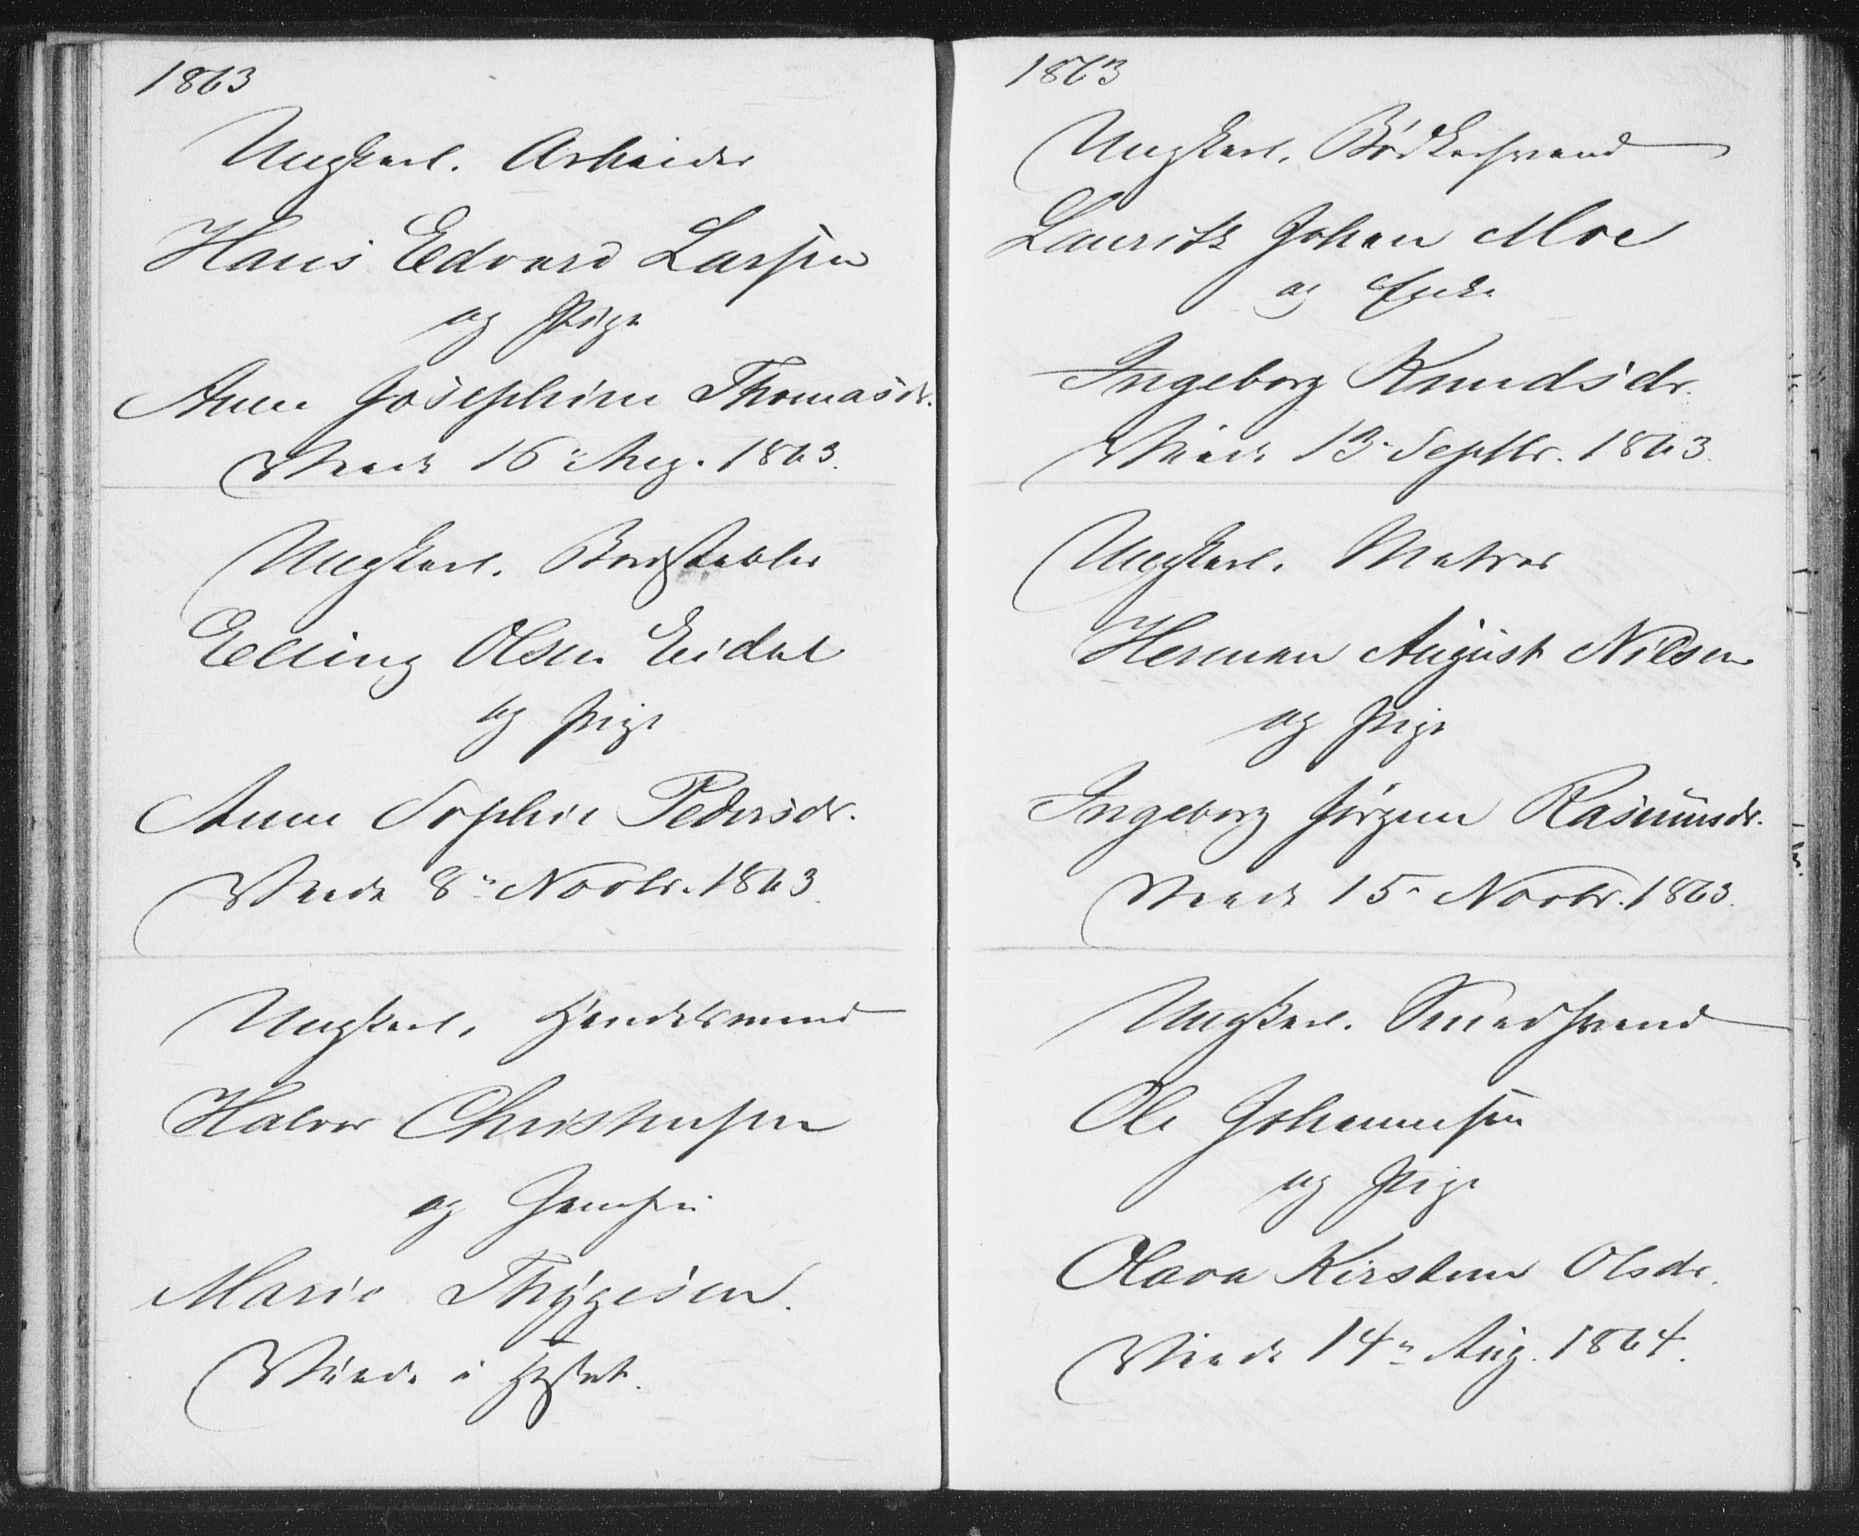 1863
Ungkarl. Arbeider
Hans Edvard Larsen
og Pige
Anne Josephine Thomasdr.
Viede 16" Aug. 1863.
Ungkarl. Bordstabler
Elling Olsen Eidal
og Pige
Anne Sophie Pedersdr.
Viede 8" Novbr. 1863.
Ungkarl. Handelsmand
Halvor Christensen
og Jomfru
Marie Thygesen.
Viede i
1863
Ungkarl. Bødkersvend
Lauritz Johan Moe
og Enke
Ingeborg Knudsdr.
Viede 13" Septbr. 1863.
Ungkarl. Matros
Herman August Nilsen
og Pige
Ingeborg Jørgine Rasmusdr.
Viede 15" Novbr. 1863.
Ungkarl. Smedsvend
Ole Johannesen
og Pige
Olava Kirstine Olsdr.
Viede 14" Aug. 1864.